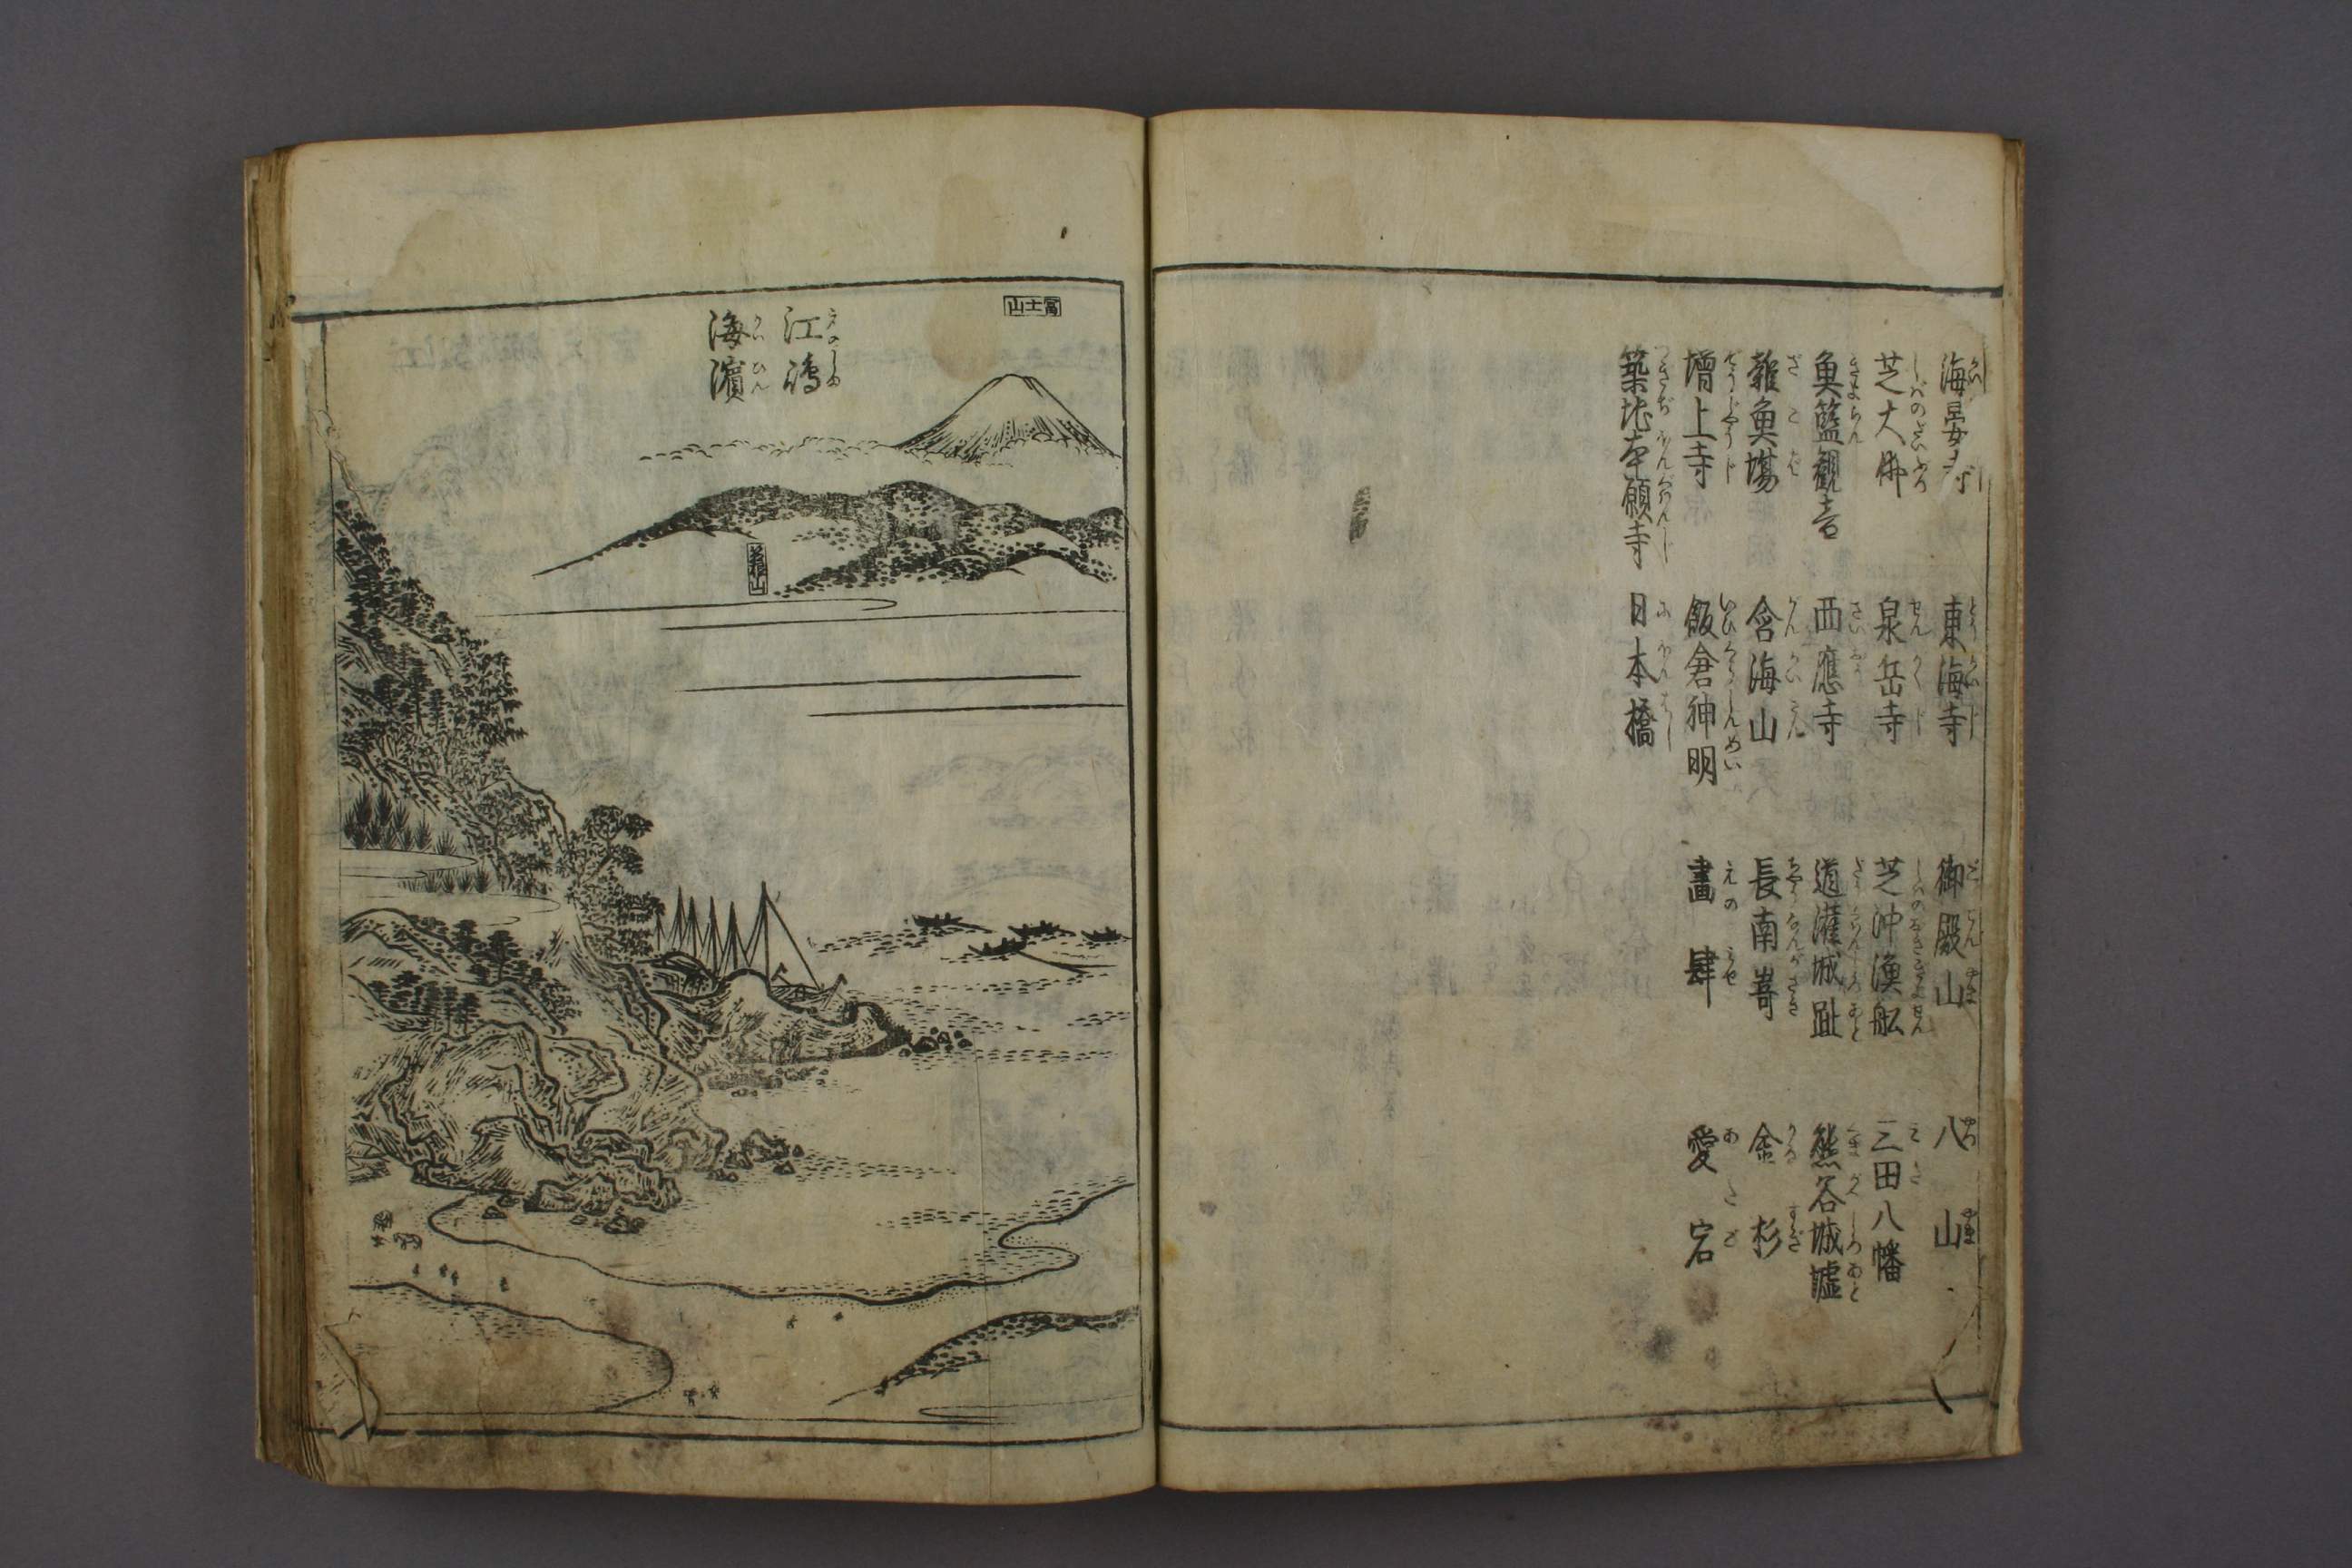 海晏寺 東海寺 御殿山 八山
芝大佛 泉岳寺 芝沖漁舩 三田八幡
魚籃観音 西應寺 道灌城趾 熊谷城墟
雜魚場 含海山 長南嵜 金杉
增上寺 飯倉神明 畫肆 愛宕
築地本願寺 日本橋
富士山
江嶋
海濵
箱根山